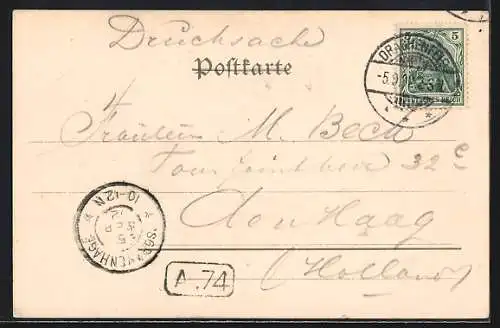 Drucksache
Postkarte
5
DRACHENFELS
-5.9.
Fräulein M. Beck
32 c
den Haag
(Holland)
'SGRAVENHAGE
10-12 N
5
SEP
A.74